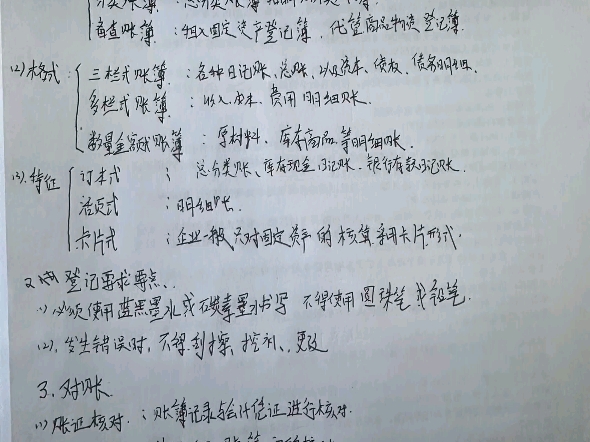 备查账簿:租入固定资产登记簿、代管商品物资登记簿
(2)格式:三栏式账簿:各种日记账、总账、以及资本、债权、债务明细.
多栏式账簿:收入、成本、费用明细账.
数量金额式账簿:原材料、库存商品等明细账.
(3).特征 订本式:总分类账、库存现金日记账、银行存款日记账.
活页式:明细账.
卡片式:企业一般只对固定资产的核算采用卡片形式.
2. 登记要求要点、
(1)必须使用蓝黑墨水或碳素墨水书写 不得使用圆珠笔或铅笔.
(2).发生错误时,不得刮擦、挖补、更改
3.对账
(1)账证核对:账簿记录与会计凭证进行核对.